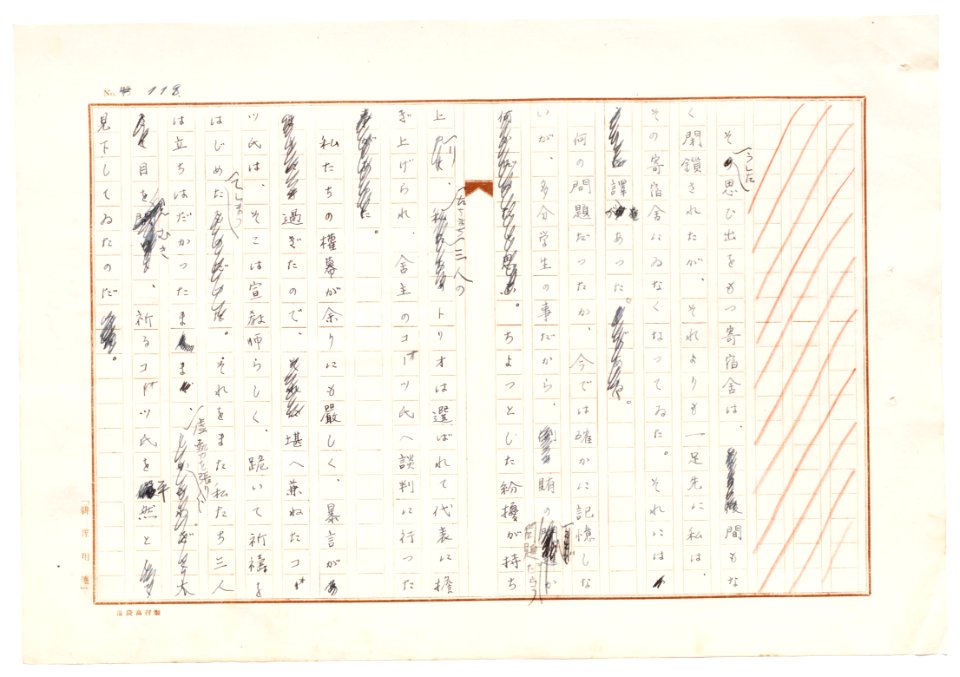 No. 118
そうした思ひ出をもつ寄宿舎は、間もな
く閉鎖されたが、それよりも一足先に私は、
その寄宿舎にゐなくなってゐた。それには
譯があった。
何の問題だったか、今では確かに記憶しな
いが、多分学生の事だから、賄の問題だらう
ちよっとした紛擾が持ち
上り、三人のトリオは選ばれて代表に擔
ぎ上げられ、舎主のコーツ氏へ談判に行った
。
私たちの權幕が余りにも嚴しく、暴言が
過ぎたので、堪へ兼ねたコー
ツ氏は、そこは宣教師らしく、跪いて祈禱を
はじめてしまった。それをまた私たち三人
は立ちはだかったまま、虚勢を張り
目をむき、祈るコーツ氏を平然と
見下してゐたのだ。